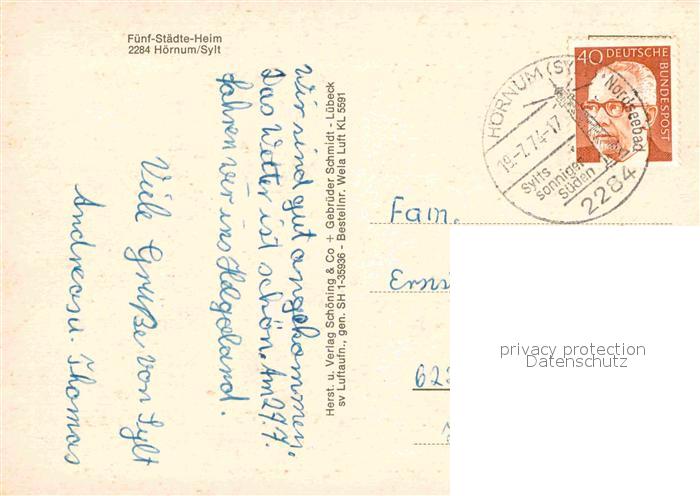 Fünf-Städte-Heim
2284 Hörnum/Sylt
Wir sind gut angekommen.
Das Wetter ist schön. Am 27.7.
fahren wir ins Helgoland.
Viele Grüße von Sylt
Andreas u. Thomas
Herst. u. Verlag Schöning & Co + Gebrüder Schmidt - Lübeck
sv Luftaufn., gen. SH 1-35936 - Bestellnr. Wela Luft KL 5591
HÖRNUM (SY
Nordseebad
19.-7.74-17
Sylts
sonniger
Süden
2284
40 DEUTSCHE
BUNDESPOST
Fam.
Erns
622
privacy protection
Datenschutz